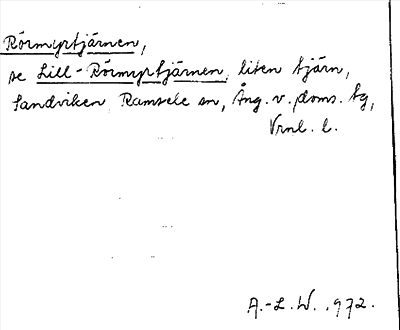 Rörmyrtjärnen,
se Lill-Rörmyrtjärnen, liten tjärn,
Sandviken, Ramsele sn, Ång. v. doms. tg,
Vrnl. l.
A.-L. W. 1972.